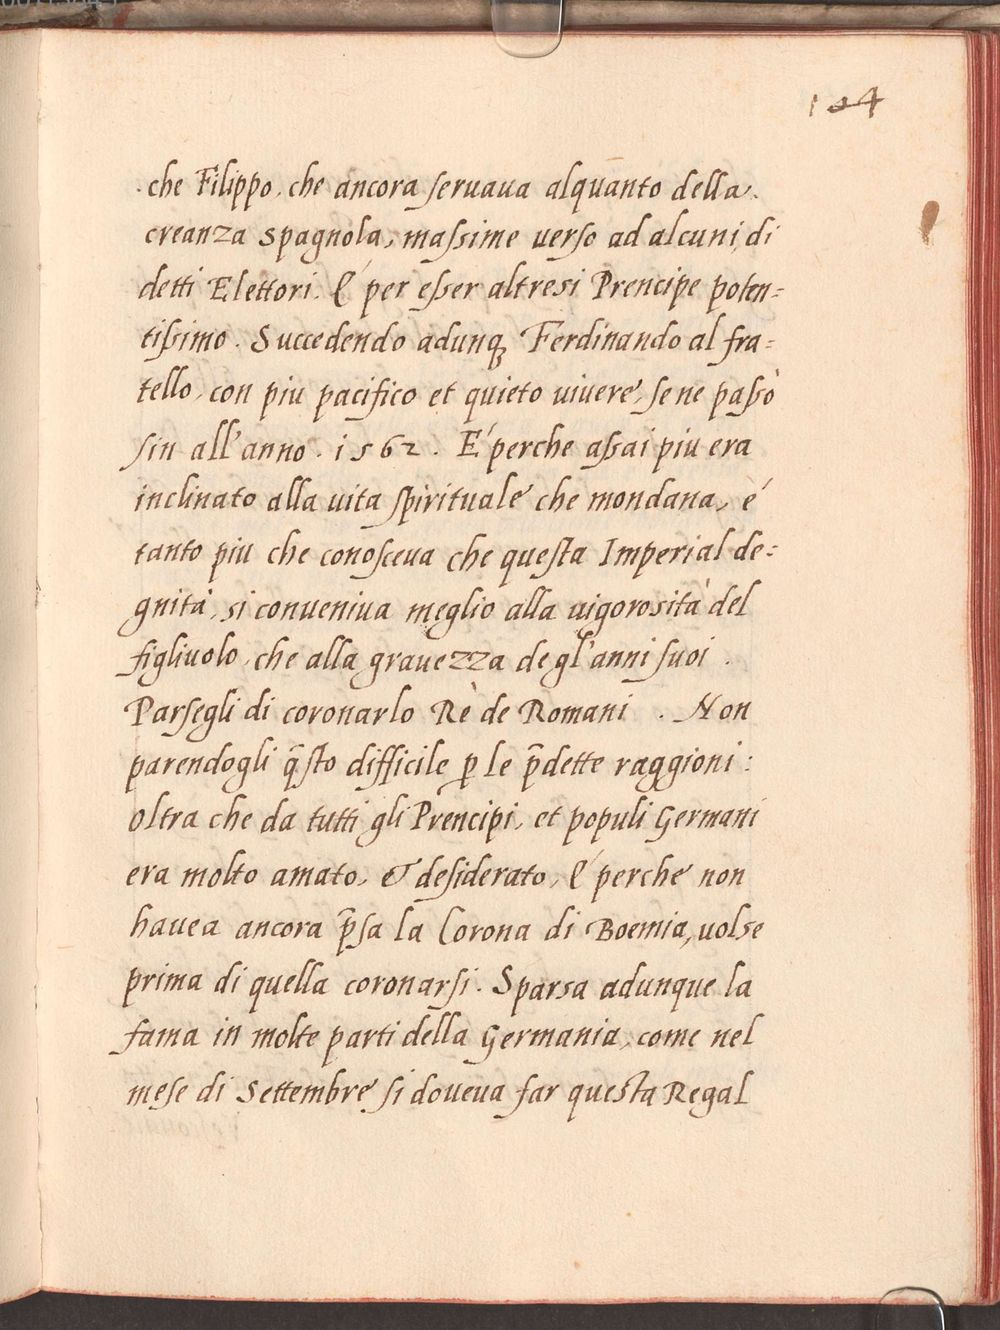 104
che Filippo, che ancora seruaua alquanto della
creanza spagnola, massime uerso ad alcuni di
detti Elettori. É per esser altresi Prencipe poten=
tissimo. Succedendo adunq Ferdinando al fra=
tello, con piu pacifico et quieto uiuere, se ne passò
sin all'anno. 1562. É perche assai piu era
inclinato alla uita spirituale che mondana, é
tanto piu che conosceua che questa Imperial de=
gnità, si conueniua meglio alla uigorosità del
figliuolo, che alla grauezza degl'anni suoi.
Parsegli di coronarlo Rè de Romani. Non
parendogli q̃sto difficile p̱ le p̃dette raggioni:
oltra che da tutti gli Prencipi, et populi Germani
era molto amato, & desiderato, É perche non
hauea ancora p̃sa la Corona di Boemia, uolse
prima di quella coronarsi. Sparsa adunque la
fama in molte parti della Germania, come nel
mese di Settembre si doueua far questa Regal